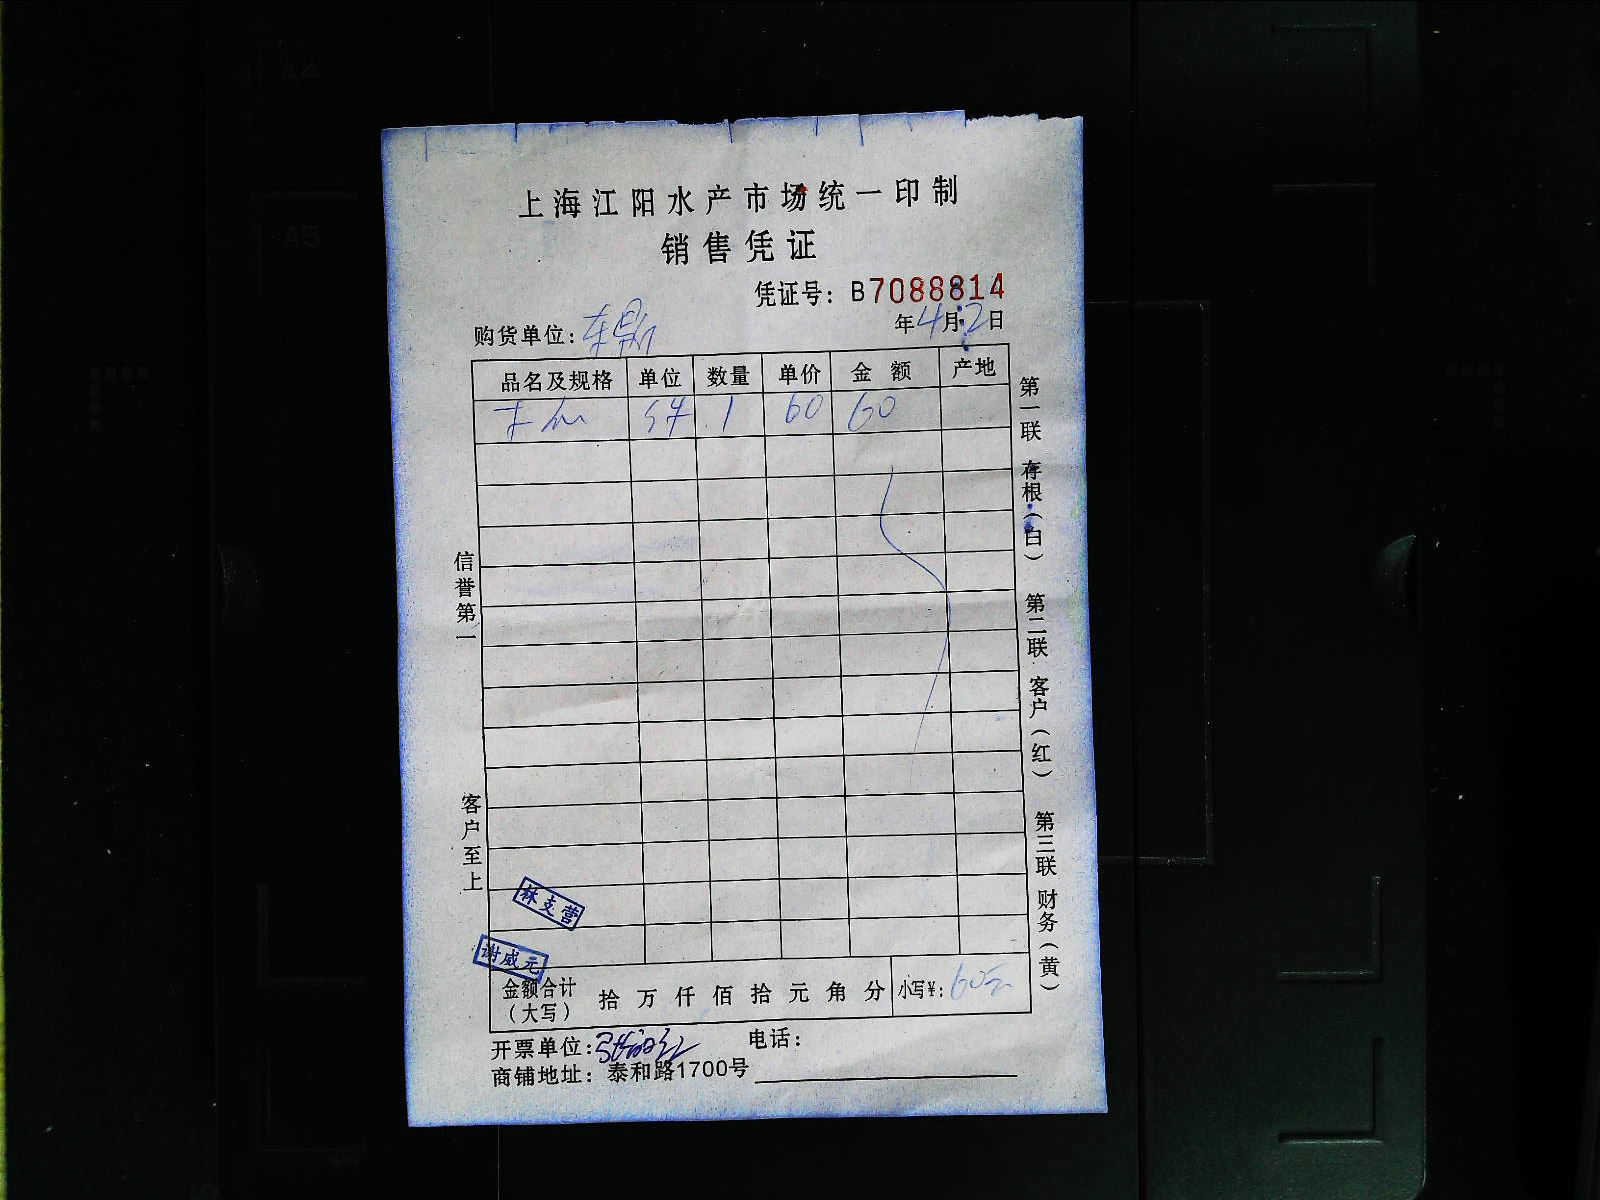 上海江阳水产市场统一印制
销售凭证
凭证号：B7088814
购货单位：东鼎 年4月2日
品名及规格 单位 数量 单价 金额 产地
1 60 60
信誉第一
客户至上
第一联 存根（白） 第二联 客户（红） 第三联 财务（黄）
林支营
谢威元
金额合计（大写） 拾万仟佰拾元角分 小写¥：60元
开票单位： 电话：
商铺地址：泰和路1700号